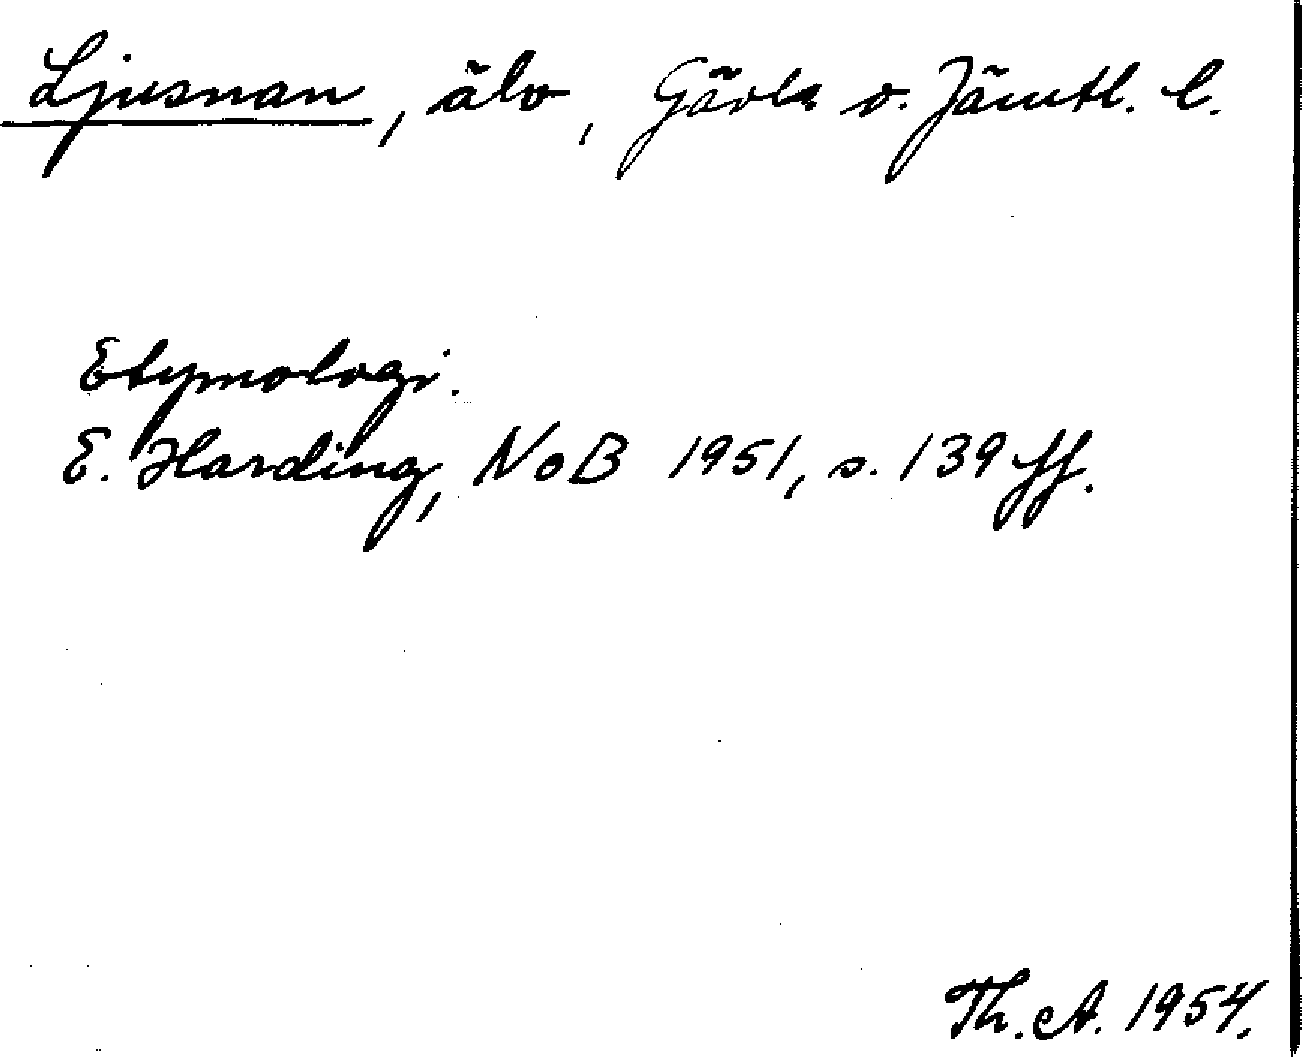 Ljusnan, älv, Gävle o. Jämtl. l.
Etymologi.
E. Harding, NoB 1951, s. 139 ff.
Th. A. 1954.